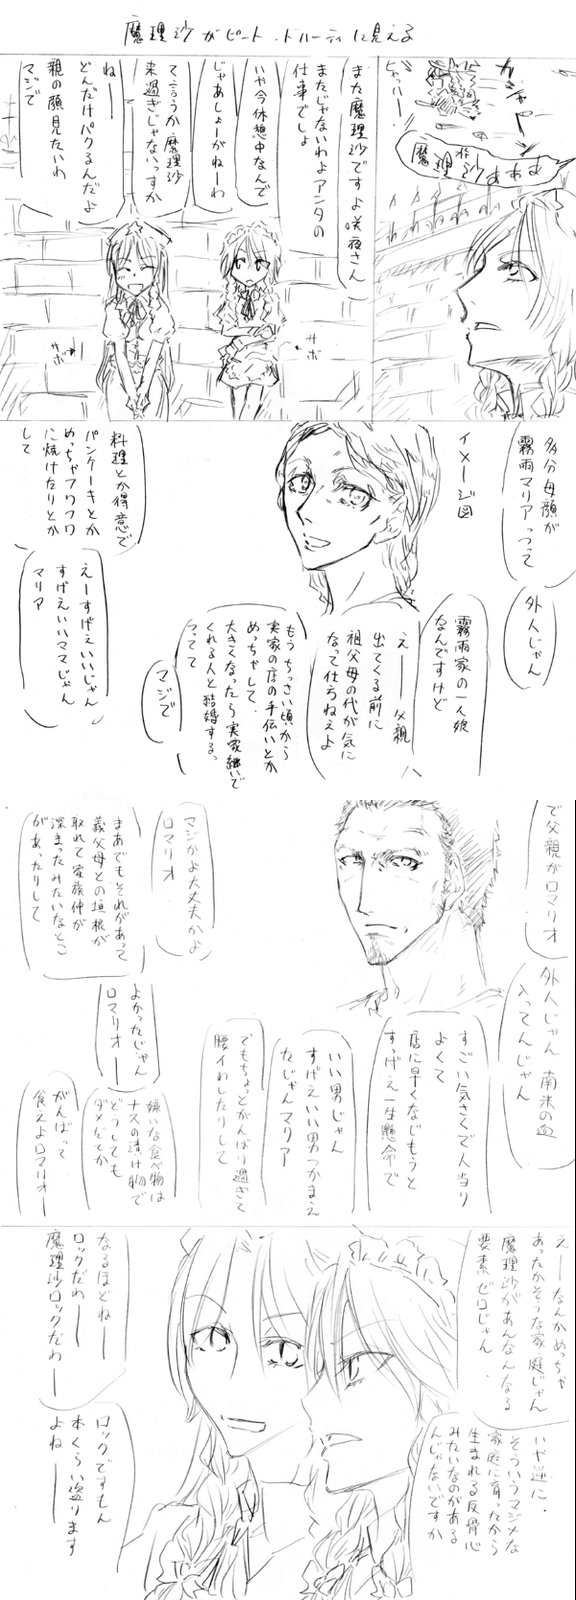 魔理沙がピート・ドハーティに見える
ガシャーン
ヒャッハー!
魔理沙ぁぁぁ
また魔理沙ですよ咲夜さん
またじゃないわよアンタの
仕事でしょ
いや今休憩中なんで
じゃあしょーがねーわ
て言うか魔理沙
来過ぎじゃないっすか
ねー
どんだけパクるんだよ
親の顔見たいわ
マジで
サボ
サボ
多分母親が
霧雨マリアっつって
外人じゃん
イメージ図
霧雨家の一人娘
なんですけど
えー父親
出てくる前に
祖父母の代が気に
なって仕方ねえよ
もうちっさい頃から
実家の店の手伝いとか
めっちゃして、
大きくなったら実家継いで
くれる人と結婚するっ
つってて
マジで
料理とか得意で
パンケーキとか
めっちゃフワフワ
に焼けたりとか
して
えーすげえいいじゃん
すげえいいママじゃん
マリア
で父親がロマリオ
外人じゃん 南米の血
入ってんじゃん
すごい気さくで人当り
よくて
店に早くなじもうと
すっげえ一生懸命で
いい男じゃん
すげえいい男つかまえ
たじゃんマリア
でもちょっとがんばり過ぎて
腰イわしたりして
マジかよ大丈夫かよ
ロマリオ
まあでもそれがあって
義父母との垣根が
取れて家族仲が
深まったみたいなとこ
があったりして
よかったじゃん
ロマリオー
嫌いな食べ物は
ナスの漬け物で
どうしても
ダメだとか
がんばって
食えよロマリオー
えーなんかめっちゃ
あったかそうな家庭じゃん
魔理沙があんなんなる
要素ゼロじゃん、
いや逆に、
そういうマジメな
家庭に育ったから
生まれる反骨心
みたいなのがある
んじゃないですか
なるほどねー
ロックだわー
魔理沙ロックだわー
ロックですもん
本くらい盗ります
よねー